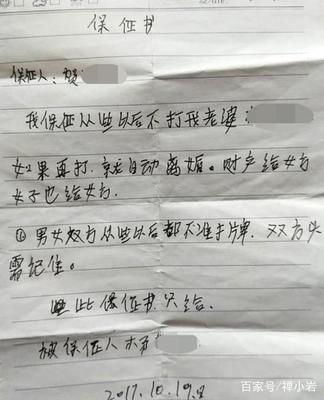 保证书
保证人:贺
我保证从些以后不打我老婆
如果再打.就自动离婚。财产给女方
长子也给女方.
① 男女双方从些以后都不准打牌.双方
需记住。
些此保证书只给.
被保证人
2017.10.19日
百家号/禅小岩